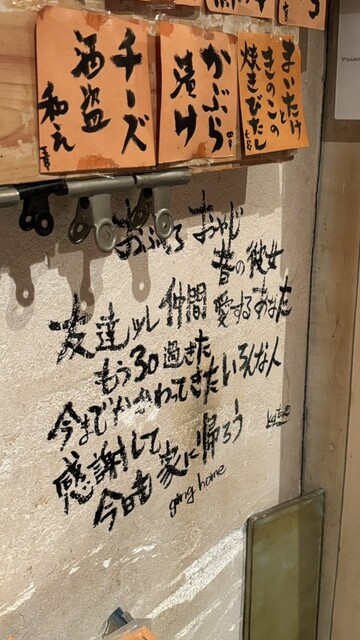 まいたけと
きのこの
焼きびたし
かぶら
漬け
チーズ
酒盗
和え
おふくろ おやじ
昔の彼女
友達 仲間 愛するあなた
もう30過ぎた
今までかかわってきたいろんな人
感謝して
今日も 家に帰ろう
going home